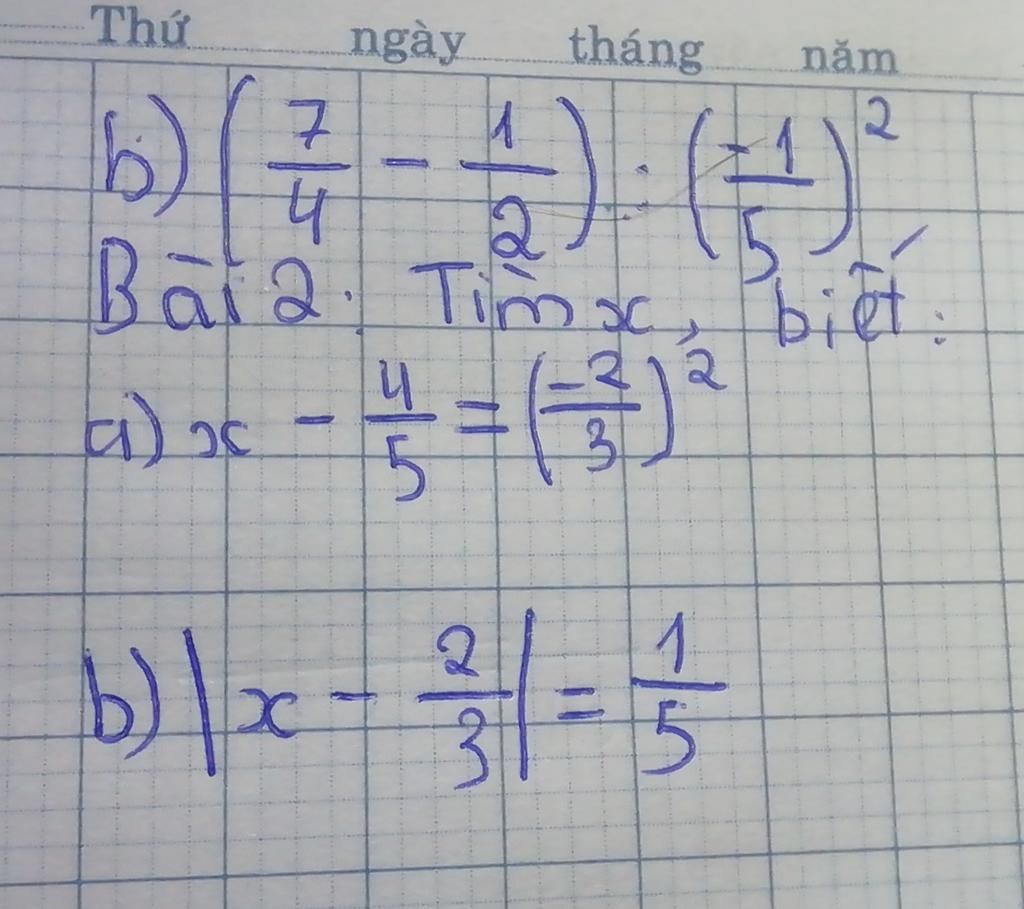 Thứ ngày tháng năm
b) (7/4 - 1/2) : (-1/5)²
Bài 2. Tìm x, biết:
a) x - 4/5 = (-2/3)²
b) |x - 2/3| = 1/5